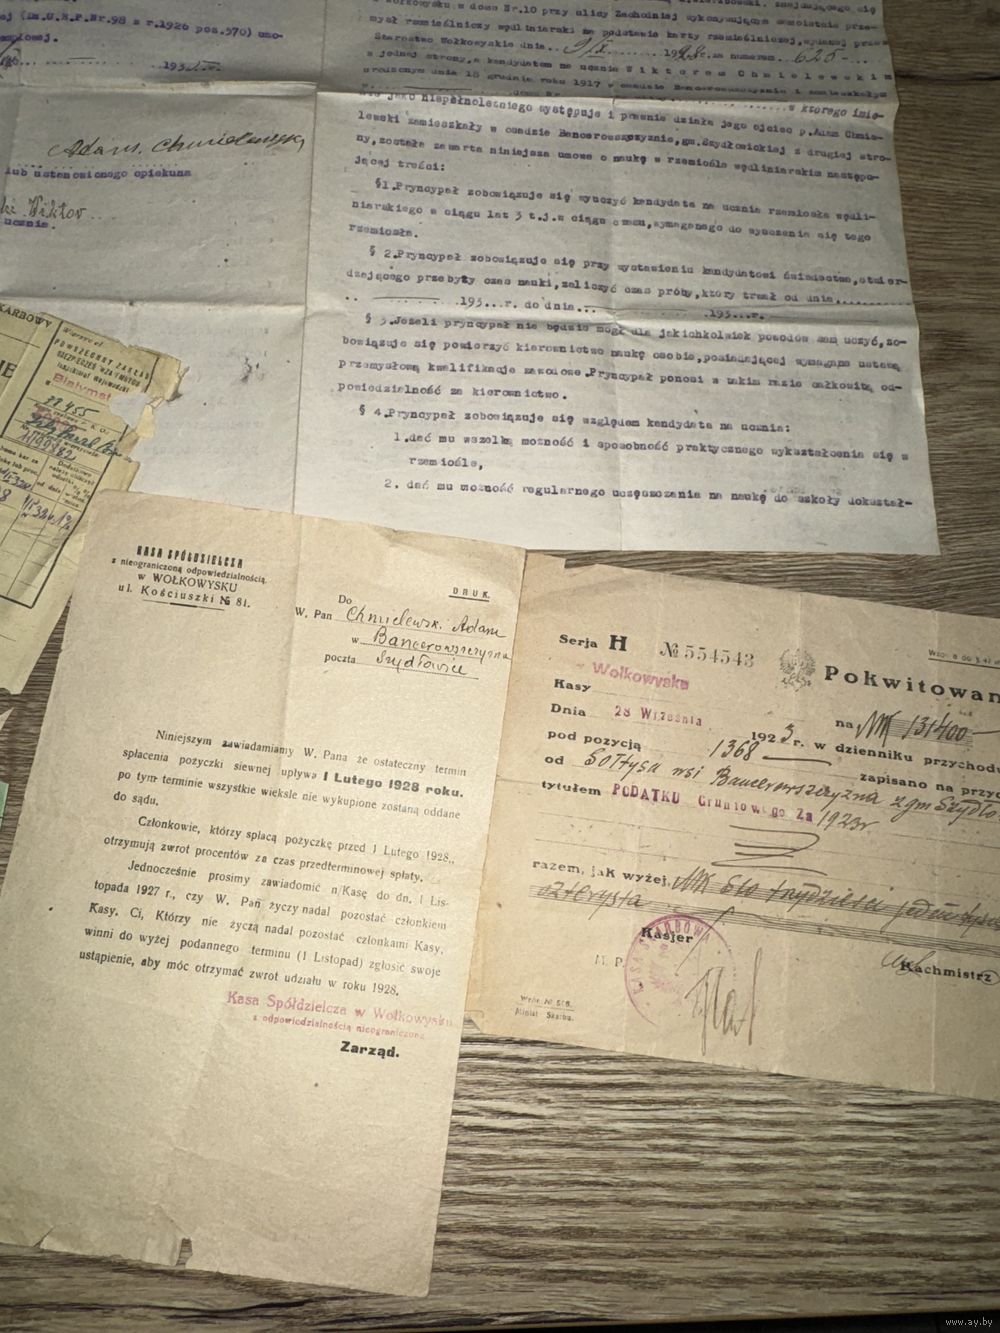 (Dz.U.R.P.Nr.98 z r.1926 poz.570) umo-
193
Adam Chmielewski
lub ustanowionego opiekuna
Wiktor
ucznia.
w domu Nr.10 przy ulicy Zachodniej wykonywującym samoistnie prze-
mysł rzemieślniczy wędliniarski na podstawie karty rzemieślniczej, wydanej przez
Starostwo Wołkowyskie dnia 9/X 1928r. za numerem 625
z jednej strony, a kandydatem na ucznia Wiktorem Chmielewskim
urodzonym dnia 18 grudnia roku 1917 w osadzie Bancerowszczyźnie i zamieszkałym
w którego imie-
niu jako niepełnoletniego występuje i prawnie działa jego ojciec p. Adam Chmie-
lewski zamieszkały w osadzie Bancerowszczyznie, gm. Szydłowickiej z drugiej stro-
ny, została zawarta niniejsza umowa o naukę w rzemiośle wędliniarskim następu-
jącej treści:
§1.Pryncypał zobowiązuje się wyuczyć kandydata na ucznia rzemiosła wędli-
niarskiego w ciągu lat 3 t.j.w ciągu czasu, wymaganego do wyuczenia się tego
rzemiosła.
§ 2.Pryncypał zobowiązuje się przy wystawieniu kandydatowi świadectwa, stwier-
dzającego przebyty czas nauki, zaliczyć czas próby, który trwał od dnia
193...r. do dnia 193...r.
§ 3.Jeżeli pryncypał nie będzie mógł dla jakichkolwiek powodów sam uczyć, zo-
bowiązuje się powierzyć kierownictwo nauką osobie, posiadającej wymagane ustawą
przemysłową kwalifikacje zawodowe. Pryncypał ponosi w takim razie całkowitą od-
powiedzialność za kierownictwo.
§ 4.Pryncypał zobowiązuje się względem kandydata na ucznia:
1.dać mu wszelką możność i sposobność praktycznego wykształcenia się w
rzemiośle,
2. dać mu możność regularnego uczęszczania na naukę do szkoły dokształ-
KARBOWY
POWSZECHNY ZAKŁAD
UBEZPIECZEŃ WZAJEMNYCH
KASA SPÓŁDZIELCZA
z nieograniczoną odpowiedzialnością
w WOŁKOWYSKU
ul. Kościuszki № 81.
DRUK.
Do
W. Pan Chmielewski Adam
w Bancerowszczyzna
poczta Szydłowice
Niniejszym zawiadamiamy W. Pana że ostateczny termin
spłacenia pożyczki siewnej upływa 1 Lutego 1928 roku.
po tym terminie wszystkie wieksle nie wykupione zostaną oddane
do sądu.
Członkowie, którzy spłacą pożyczkę przed 1 Lutego 1928.,
otrzymują zwrot procentów za czas przedterminowej spłaty.
Jednocześnie prosimy zawiadomić n/Kasę do dn. 1 Lis-
topada 1927 r., czy W. Pan życzy nadal pozostać członkiem
Kasy. Ci, Którzy nie życzą nadal pozostać członkami Kasy,
winni do wyżej podannego terminu (1 Listopad) zgłosić swoje
ustąpienie, aby móc otrzymać zwrot udziału w roku 1928.
Kasa Spółdzielcza w Wołkowysku
z odpowiedzialnością nieograniczoną
Zarząd.
Serja H № 554543
Pokwitowan
Kasy Wołkowyska
Dnia 28 Września 1923 r.
na MK 131400
pod pozycją 1368 w dzienniku przychodu
zapisano na przych
od Sołtysa wsi Bancerowszczyzna z gm Szydło
tytułem PODATKU Gruntowego Za 1923r
razem, jak wyżej, MK Sto trzydzieści jeden tysięcy
czterysta
Kasjer
M. P.
KASA SKARBOWA
Rachmistrz
Wzór. № 5/8.
Minist Skarbu.
www.ay.by